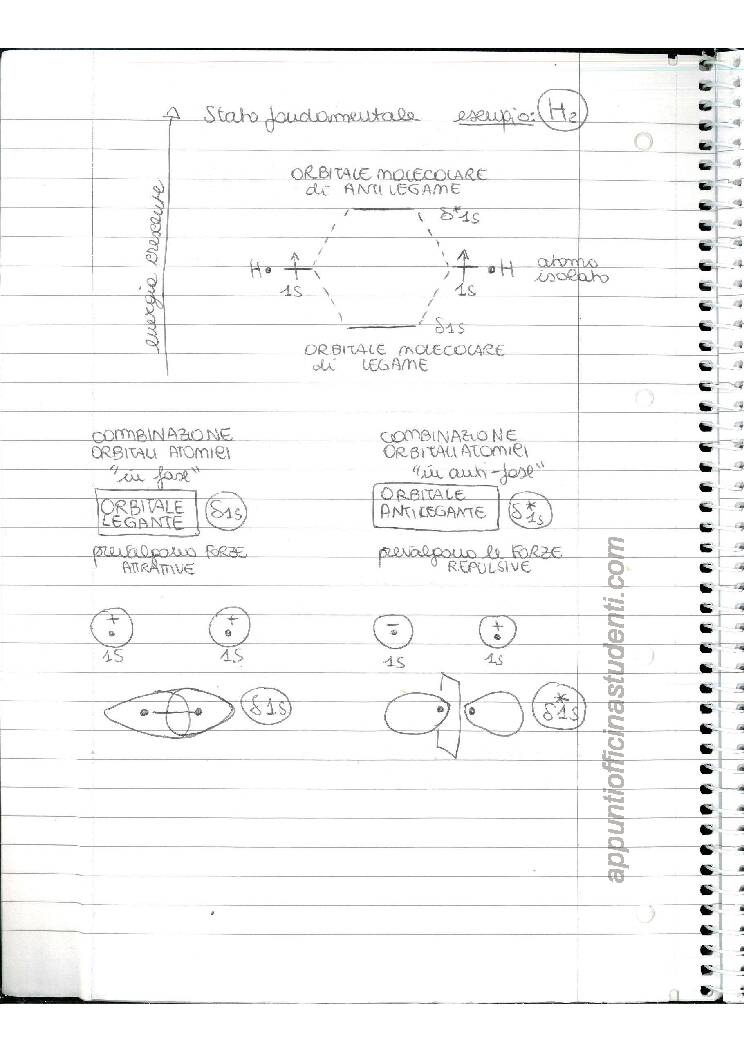 Stato fondamentale esempio: H2
energia crescente
ORBITALE MOLECOLARE
di ANTILEGAME
δ*1s
H 1S
1S H
atomo
isolato
δ1s
ORBITALE MOLECOLARE
di LEGAME
COMBINAZIONE
ORBITALI ATOMICI
"in fase"
ORBITALE
LEGANTE
δ1s
prevalgono FORZE
ATTRATTIVE
+ +
1S 1S
δ1s
COMBINAZIONE
ORBITALI ATOMICI
"in anti-fase"
ORBITALE
ANTILEGANTE
δ*1s
prevalgono le FORZE
REPULSIVE
- +
1S 1s
δ*1s
appuntiofficinastudenti.com